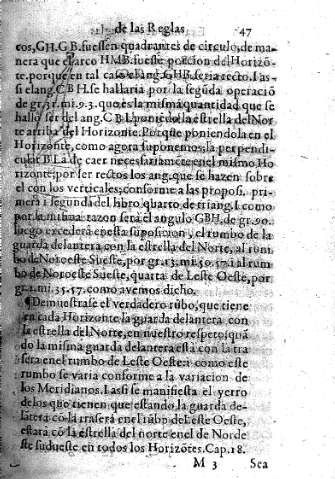 de las Reglas 47
cos, GH. GB. fuessen quadrantes de circulo, de ma-
nera que el arco HMB. fuesse porcion del Horizõ-
te, porque en tal caso el ang. GHB. seria recto. I as-
si el ang. CBH. se hallaria por la segũda operació
de gr. 31. mi. 93. que es la misma quantidad que se
hallo ser del ang. CBL poniẽdo la estrella del Nor
te arriba del Horizonte. Porque poniendola en el
Horizonte, como agora suponemos, la perpendi-
cular BLA. de caer necessariamẽte en el mismo Ho
rizonte, por ser rectos los ang. que se hazen sobre
el con los verticales, conforme a las propos. pri-
mera i segunda del libro quarto de triang. I como
por la misma razon será el angulo GBH. de gr. 90.
luego excederá en esta suposicion, el rumbo de la
guarda delantera con la estrella del Norte, al rum
bo de Noroeste Sueste, por gr. 13. mi. 50. 57. i al rum
bo de Noroeste Sueste, quarta de Leste Oeste, por
gr. 2. mi. 35. 57. como avemos dicho.
¶ Demuestrase el verdadero rũbo, que tiene
en cada Horizonte la guarda delantera con
la estrella del Norte, en nuestro respeto, quã
do la misma guarda delantera está con la tra
sera en el rumbo de Leste Oeste: a como este
rumbo se varia conforme a la variacion de
los Meridianos. I assi se manifiesta el yerro
de los que tienen que estando la guarda de-
lãtera cõ la trasera en el rũbo de Leste Oeste,
estará cõ la estrella del norte en el de Norde
ste sudueste en todos los Horizõtes. Cap. 18.
M 3 Sea